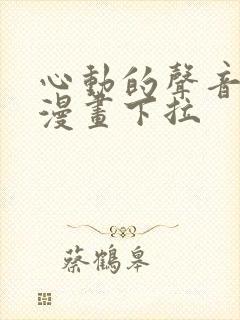 心動的聲音
漫畫下拉
蔡鶴皋